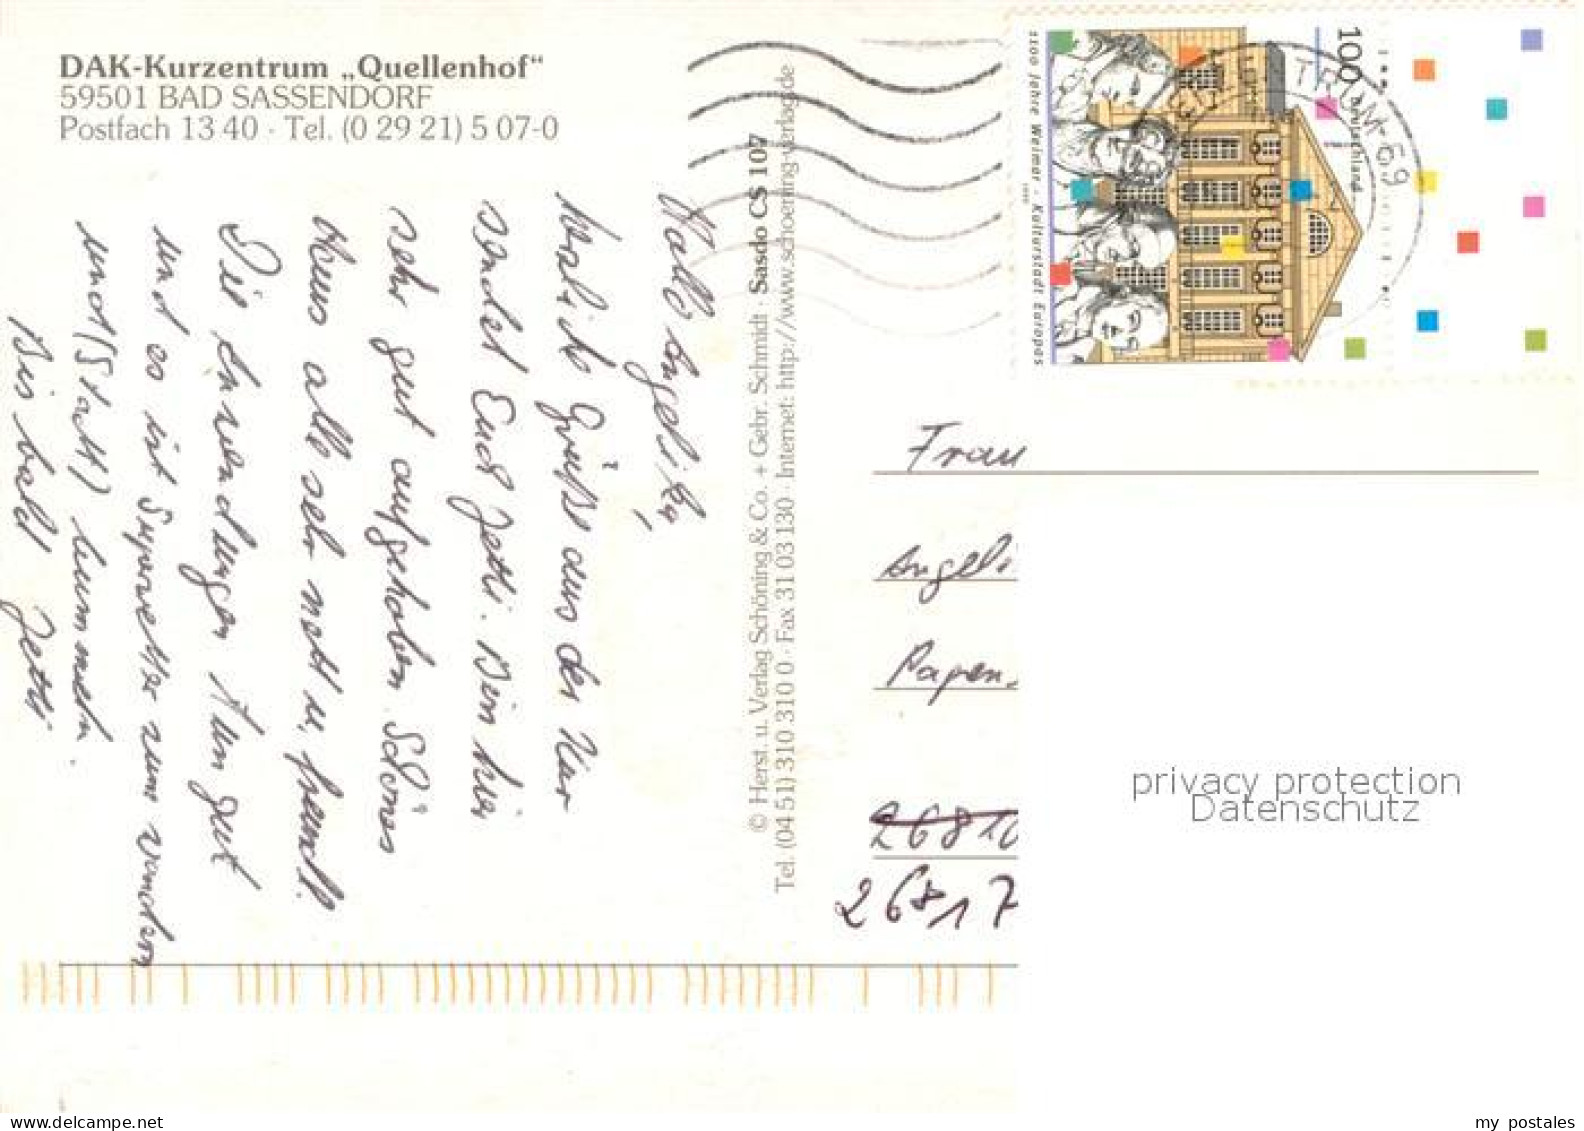 DAK-Kurzentrum „Quellenhof“
59501 BAD SASSENDORF
Postfach 13 40 · Tel. (0 29 21) 5 07-0
Hallo Angelika,
Herzliche Grüße aus der Kur
sendet Euch Jetti. Bin hier
sehr gut aufgehoben. Schönes
Haus alle sehr nett u. freundl.
Die Anwendungen tun gut
und es ist Superwetter zum wandern
und (Stadt) bummeln.
Bis bald Jetti
© Herst. u. Verlag Schöning & Co. + Gebr. Schmidt · Sasdo CS 107
Tel. (04 51) 310 310 0 · Fax 31 03 130 · Internet: http://www.schoening-verlag.de
1100 Jahre Weimar - Kulturstadt Europas 1999
100
Deutschland
Frau
Angeli
Papen
26810
26817
privacy protection
Datenschutz
www.delcampe.net
my postales